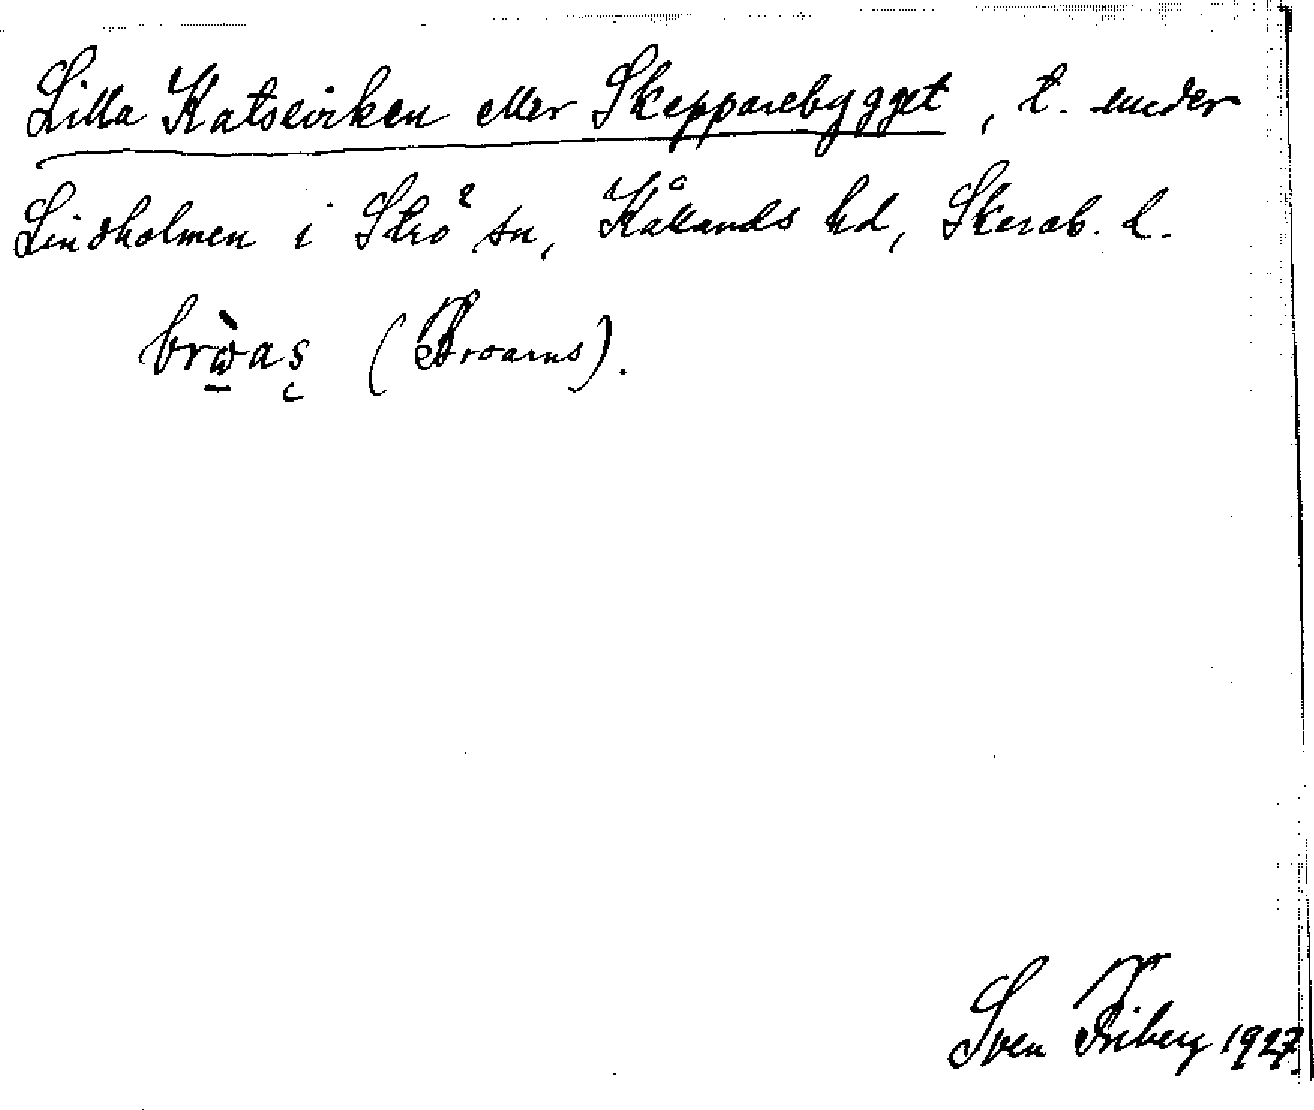 Lilla Katsvirken eller Skepparebygget, t. under
Lindholmen i Strö sn, Kållands hd, Skarab. l.
brὼ̲aş (Broarns).
Sven Friberg 1927